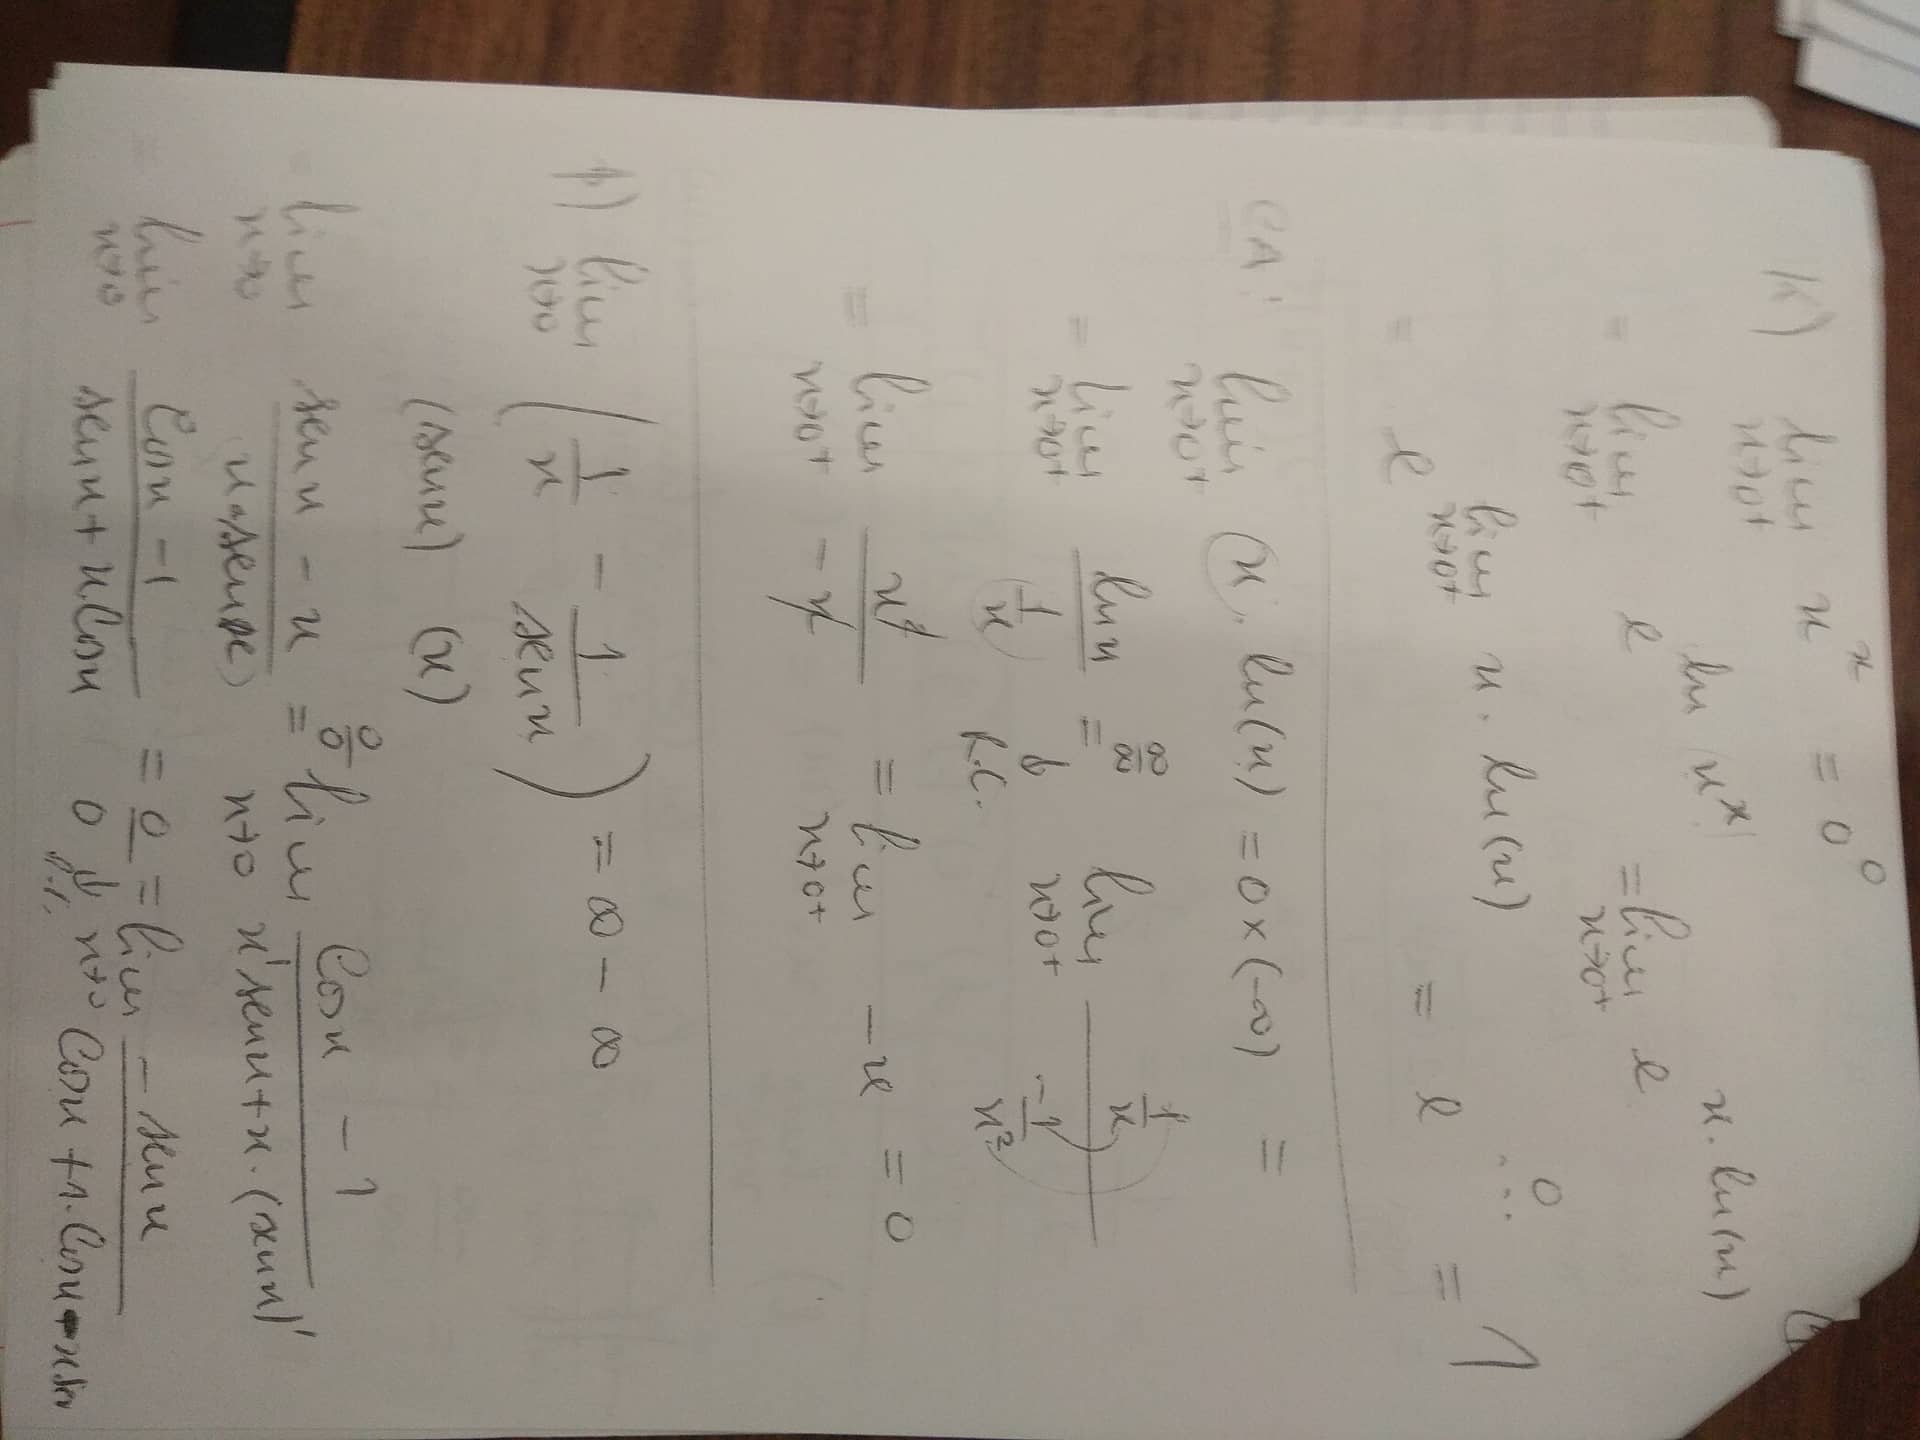 K) lim x→0+ x^x = 0^0
= lim x→0+ e^ln(x^x) = lim x→0+ e^x.ln(x)
= e^lim x→0+ x.ln(x) = e^0 = 1
CA: lim x→0+ x.ln(x) = 0×(-∞) =
= lim x→0+ ln x / (1/x) = ∞/∞ R.C. lim x→0+ (1/x) / (-1/x²)
= lim x→0+ x² / -x = lim x→0+ -x = 0
lim x→0 (1/x - 1/sen x) = ∞ - ∞
(sen x) (x)
lim x→0 (sen x - x) / (x.sen x) = 0/0 lim x→0 (Cos x - 1) / (x' sen x + x.(sen x)')
lim x→0 (Cos x - 1) / (sen x + x.Cos x) = 0/0 = R.C. lim x→0 -sen x / (Cos x + 1.Cos x - x sen